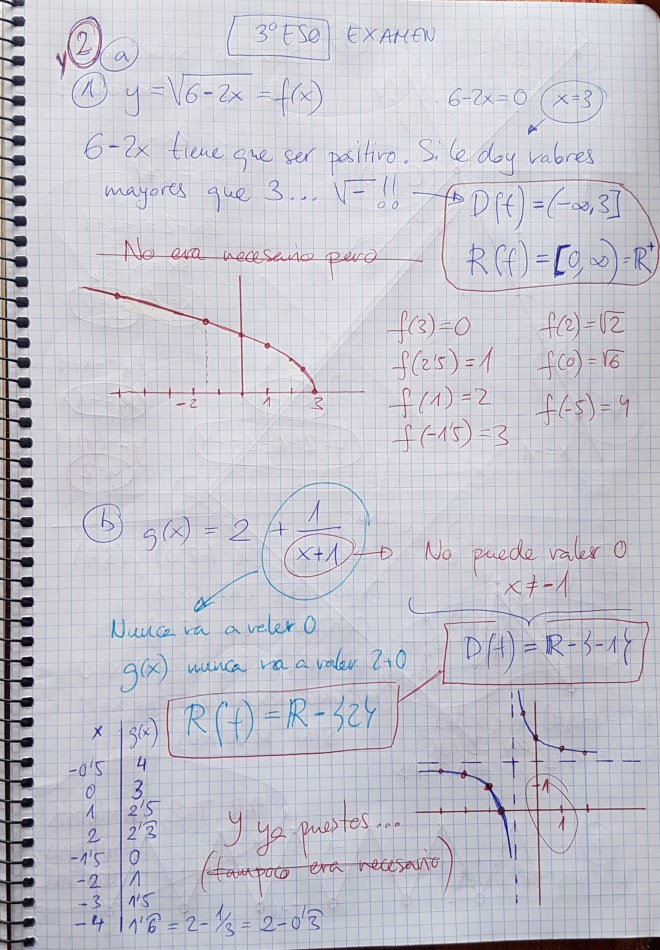 3º ESO EXAMEN
2 a
1 y = √6-2x = f(x) 6-2x=0 x=3
6-2x tiene que ser positivo. Si le doy valores
mayores que 3... √- !! → D(f) = (-∞,3]
R(f) = [0,∞) = R⁺
No era necesario pero
f(3)=0 f(2)=√2
f(2'5)=1 f(0)=√6
f(1)=2 f(-5)=4
f(-1'5)=3
-2 1 3
b g(x) = 2 + 1/(x+1) → No puede valer 0
x ≠ -1
Nunca va a valer 0
g(x) nunca va a valer 2+0
D(f) = R-{-1}
R(f) = R-{2}
x g(x)
-0'5 4
0 3
1 2'5
2 2'3
-1'5 0
-2 1
-3 1'5
-4 1'6 = 2-1/3 = 2-0'3
Y ya puestos...
(tampoco era necesario)
1
1